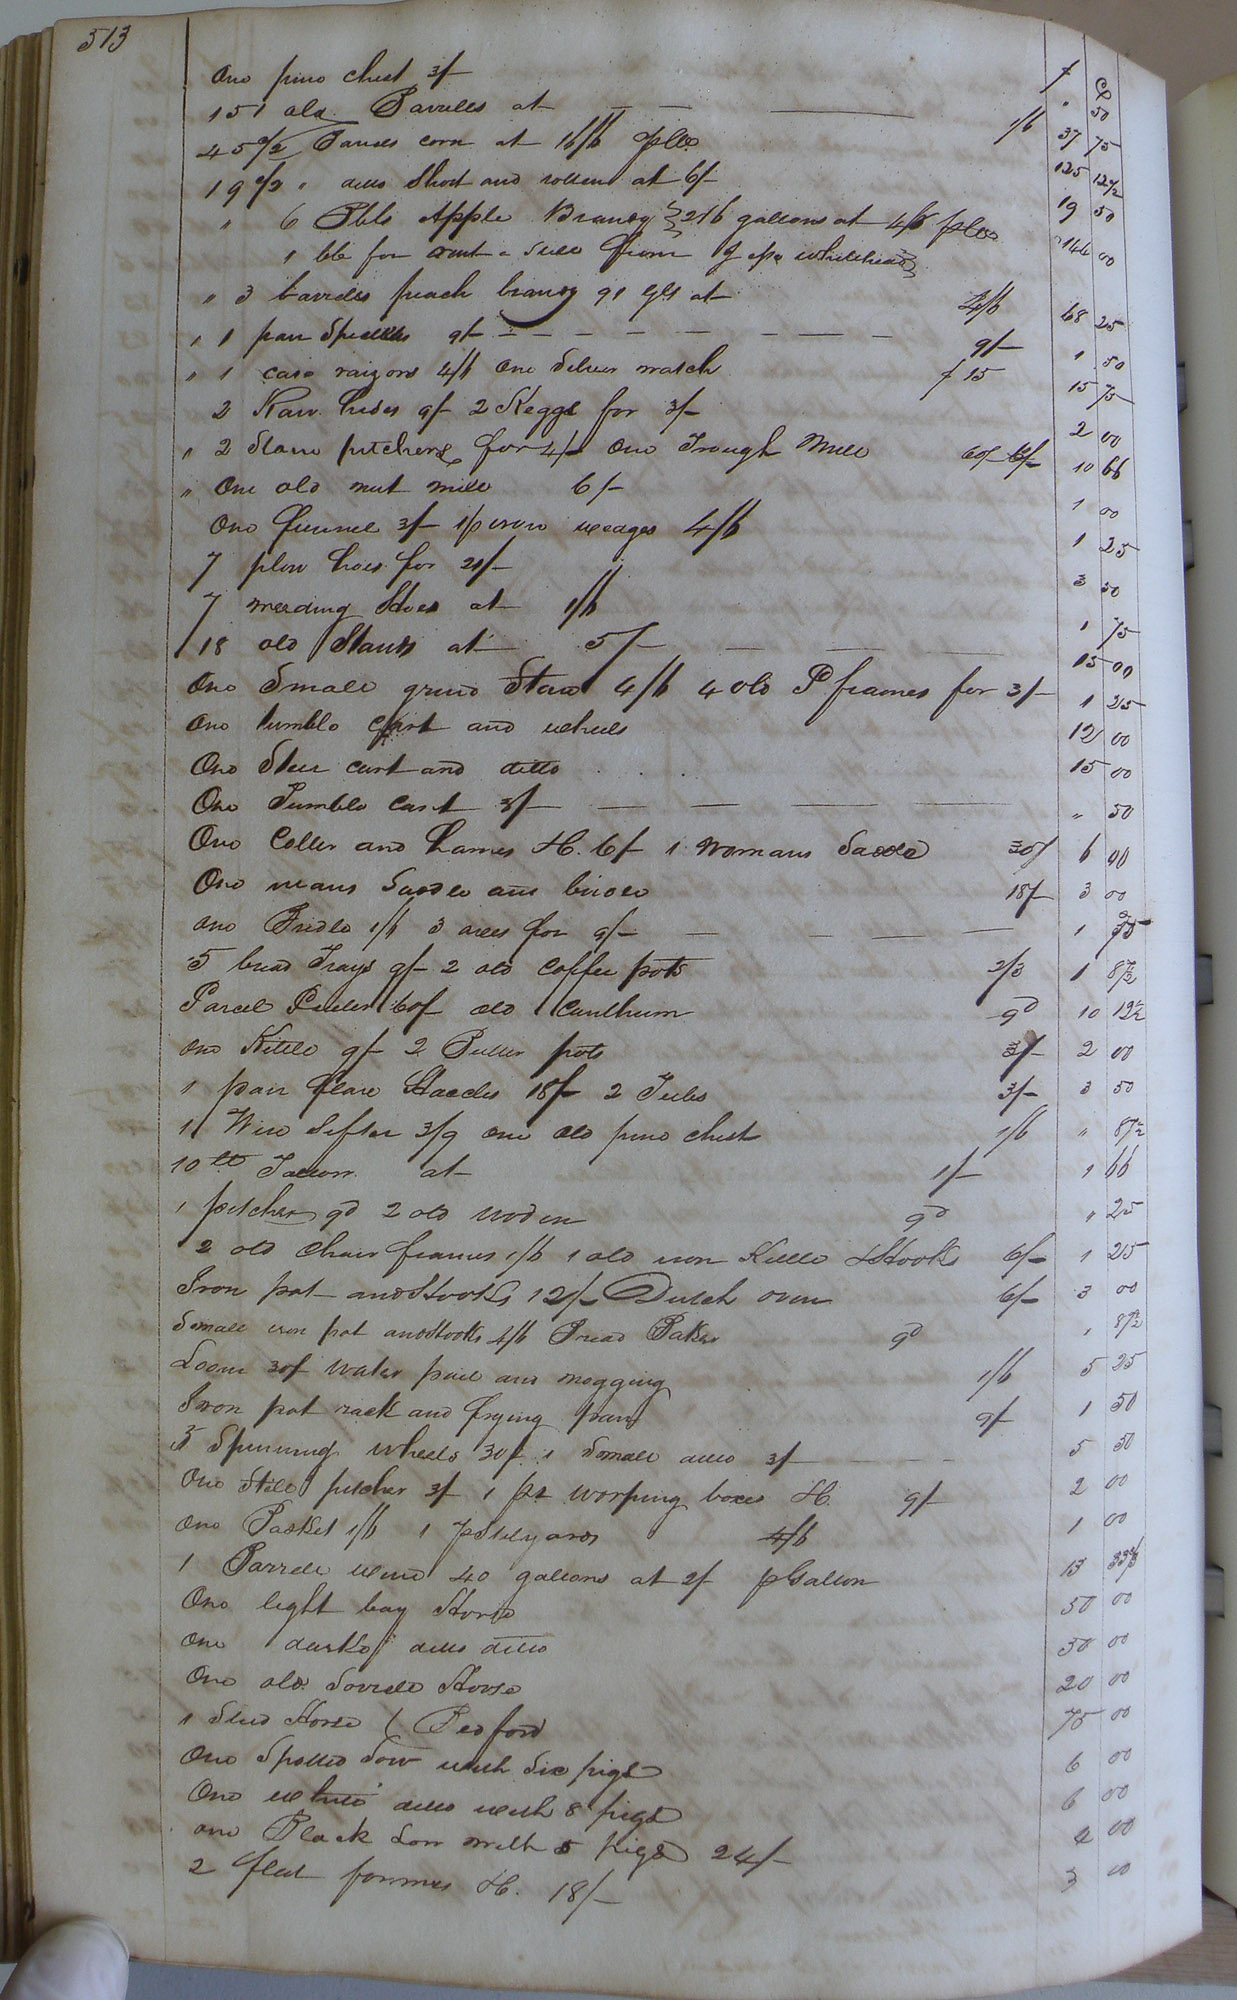 513
$ Cts
One pine chest 3/- " 50
151 old Barrells at — — — 1/6 37 75
45 1/2 Barrels corn at 16/6 pbb 125 12 1/2
19 1/2 " ditto Short and rotten at 6/- 19 50
" 6 Bbls Apple Brandy 216 gallons at 4/6
1 bb for rent - ditto from 146 00
" 3 barrels peach brandy 91 gls at 4/6 68 25
" 1 pair Specttles 9/- — — — 9/- 1 50
" 1 case raizors 4/6 One Silver watch $ 15 15 75
2 Raw hides 9/- 2 Keggs for 3/- 2 00
" 2 Stone pitchers for 4/- One Trough Mill 60/- 10 66
" One old nut mill 6/- 1 00
One funnel 3/- 1 p iron weages 4/6 1 25
7 plow hoes for 21/- 3 50
7 weeding Hoes at 1/6 1 75
18 old Stands at 5/- — — — 15 00
One Small grind Stone 4/6 4 old P frames for 3/- 1 25
One tumble cart and wheels 12 00
One Steer cart and ditto 15 00
One Tumble cart 3/- — — — " 50
One Coller and hames H. 6/- 1 Womans Saddle 30/ 6 00
One mans Saddle and bridle 18/- 3 00
one Bridle 1/6 3 axes for 9/- — — — 1 75
5 bread Trays 9/- 2 old Coffee pots 2/3 1 87 1/2
Parcel Pewter 60/ old 9d 10 12 1/2
one Kettle 9/- 2 Pewter pots 3/- 2 00
1 pair flax Hackles 18/- 2 Tubs 3/- 3 50
1 Wire Sifter 3/9 one old pine chest 1/6 " 87 1/2
10 lb Tallow at 1/- 1 66
1 pitcher 9d 2 old 9d " 25
2 old Chair frames 1/6 1 old iron Kettle & Hooks 6/- 1 25
Iron pot and Hooks 12/- Dutch oven 6/- 3 00
Small iron pot and Hooks 4/6 Bread Baker 9d " 87 1/2
Loom 30/ water pail and nogging 1/6 5 25
Iron pot rack and frying pan 9/- 1 50
5 Spinning wheels 30/. 1 Small ditto 3/- — — — 5 50
One Still pitcher 3/- 1 pr worping boxes H. 9/- 2 00
One Basket 1/6 1 p Stilyards 4/6 1 00
1 Barrele wine 40 gallons at 2/ p Gallon 13 33 1/3
One light bay Horse 50 00
One darke ditto ditto 50 00
One old Sorrell Horse 20 00
1 Stud Horse ( Bedford 75 00
One Spotted Sow with Six pigs 6 00
One white ditto with 8 pigs 6 00
one Black Sow with 5 Pigs 24/- 4 00
2 flat formes H. 18/- 3 00